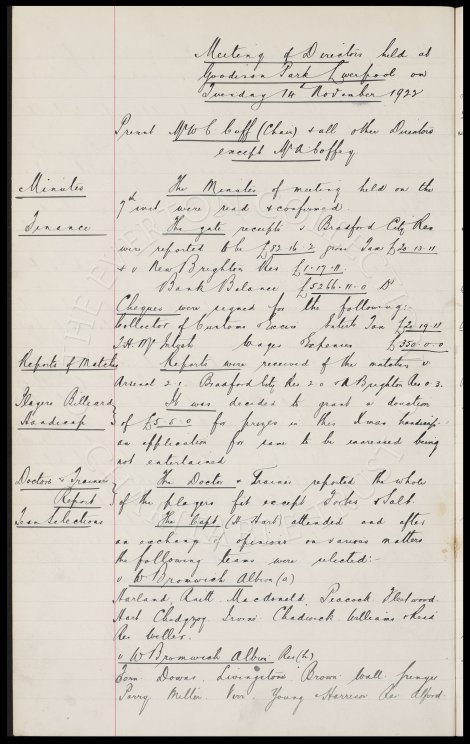 Meeting of Directors held at
Goodison Park Liverpool on
Tuesday 14th November 1922
Present Mr W C Cuff (Chair) & all other Directors
except Mr A Coffey
Minutes
The Minutes of meeting held on the
7th inst were read & confirmed.
Finance
The gate receipts v Bradford City Res
were reported to be £52.16.2 gross Tax £20.13.11
& v New Brighton Res £1.17.11.
Bank Balance £5266.11.0 Dr
Cheques were signed for the following:-
Collector of Customs & Excise Entets Tax £20.19.11
W Wages Expenses £350.0.0
Reports of Matches
Reports were received of the matches v
Arsenal 2.1. Bradford City Res 2.0 & N Brighton Res 0.3.
Players Billiard
Handicap
It was decided to grant a donation
of £5.5.0 for prizes in this Xmas handicap
an application for same to be increased being
not entertained
Doctors & Trainers
Report
The Doctor & Trainer reported the whole
of the players fit except Forbes & Salt.
Team Selections
The Capt (H Hart) attended and after
an exchange of opinions on various matters
the following teams were selected:-
v W Bromwich Albion (a)
Harland. Raitt. Macdonald. Peacock. Fleetwood.
Hart Chedgzoy. Irvine Chadwick. Williams & Reid
Res Weller.
v W Bromwich Albion Res (h)
Fern. Downs. Livingstone Brown Wall. Grenyer
Parry Miller. Virr. Young & Harrison Res Alford.
THE EVERTON